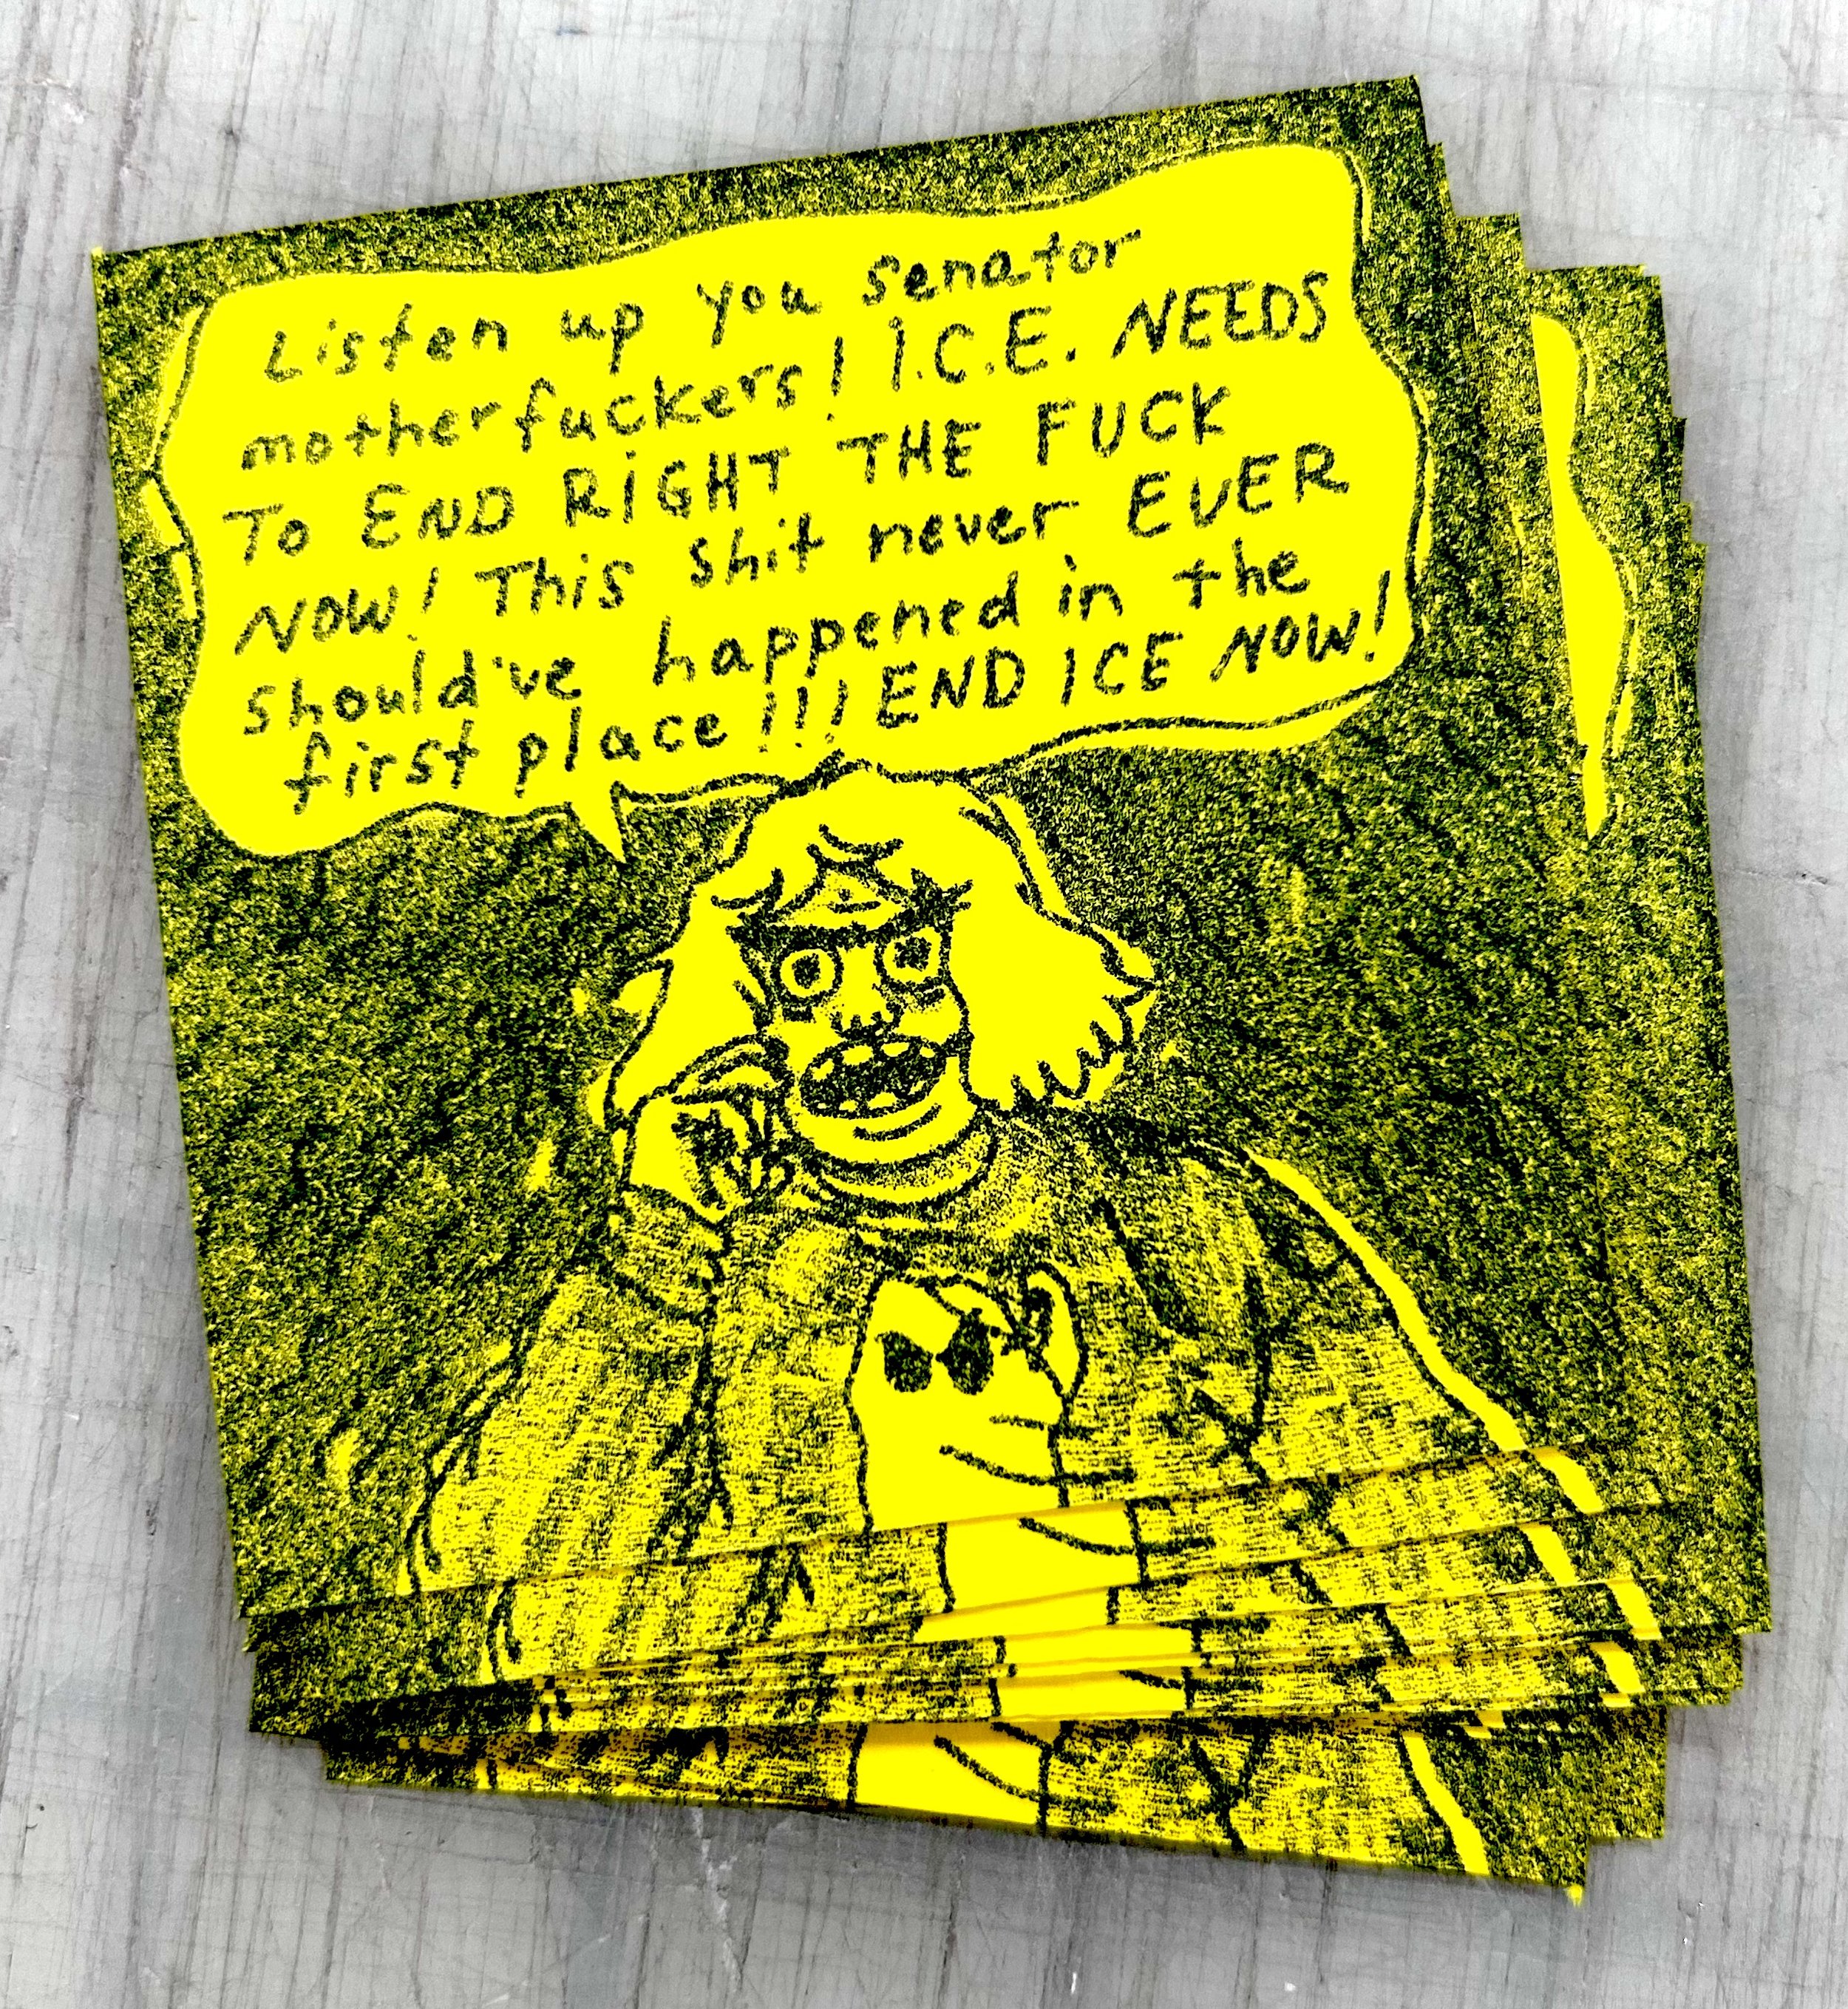 Listen up you senator
motherfuckers! I.C.E. NEEDS
TO END RIGHT THE FUCK
NOW! This shit never EVER
should've happened in the
first place!!! END ICE NOW!